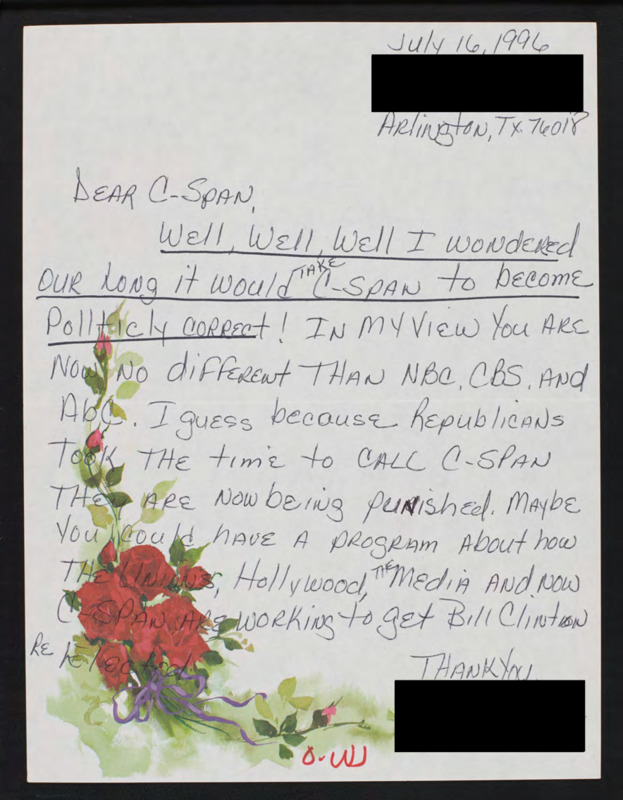 July 16, 1996
Arlington, Tx. 76018
DEAR C-SPAN,
Well, Well, Well I wondered
our long it would TAKE C-SPAN to become
Politicly correct! IN MY View You ARE
Now NO different THAN NBC, CBS, AND
Abc. I guess because Republicans
Took THE time to CALL C-SPAN
THEY ARE NOW being punished. Maybe
You could have A program About how
THE Unions, Hollywood, THE Media AND NOW
C-SPAN ARE working to get Bill Clinton
RE Elected.
THANK YOU,